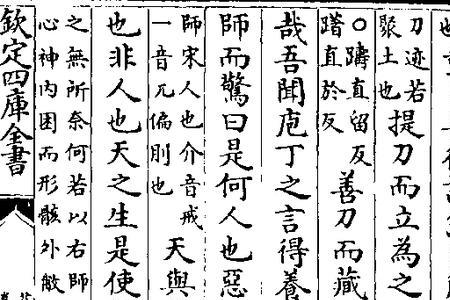 刀迹若
聚土也
提刀而立為之
○躊直留反
躇直於反
善刀而藏
哉吾聞庖丁之言得養
師而驚曰是何人也惡
師宋人也介音戒
一音兀偏刖也
天與
也非人也天之生是使
之無所奈何若以右師
心神内困而形骸外敝
欽定四庫全書